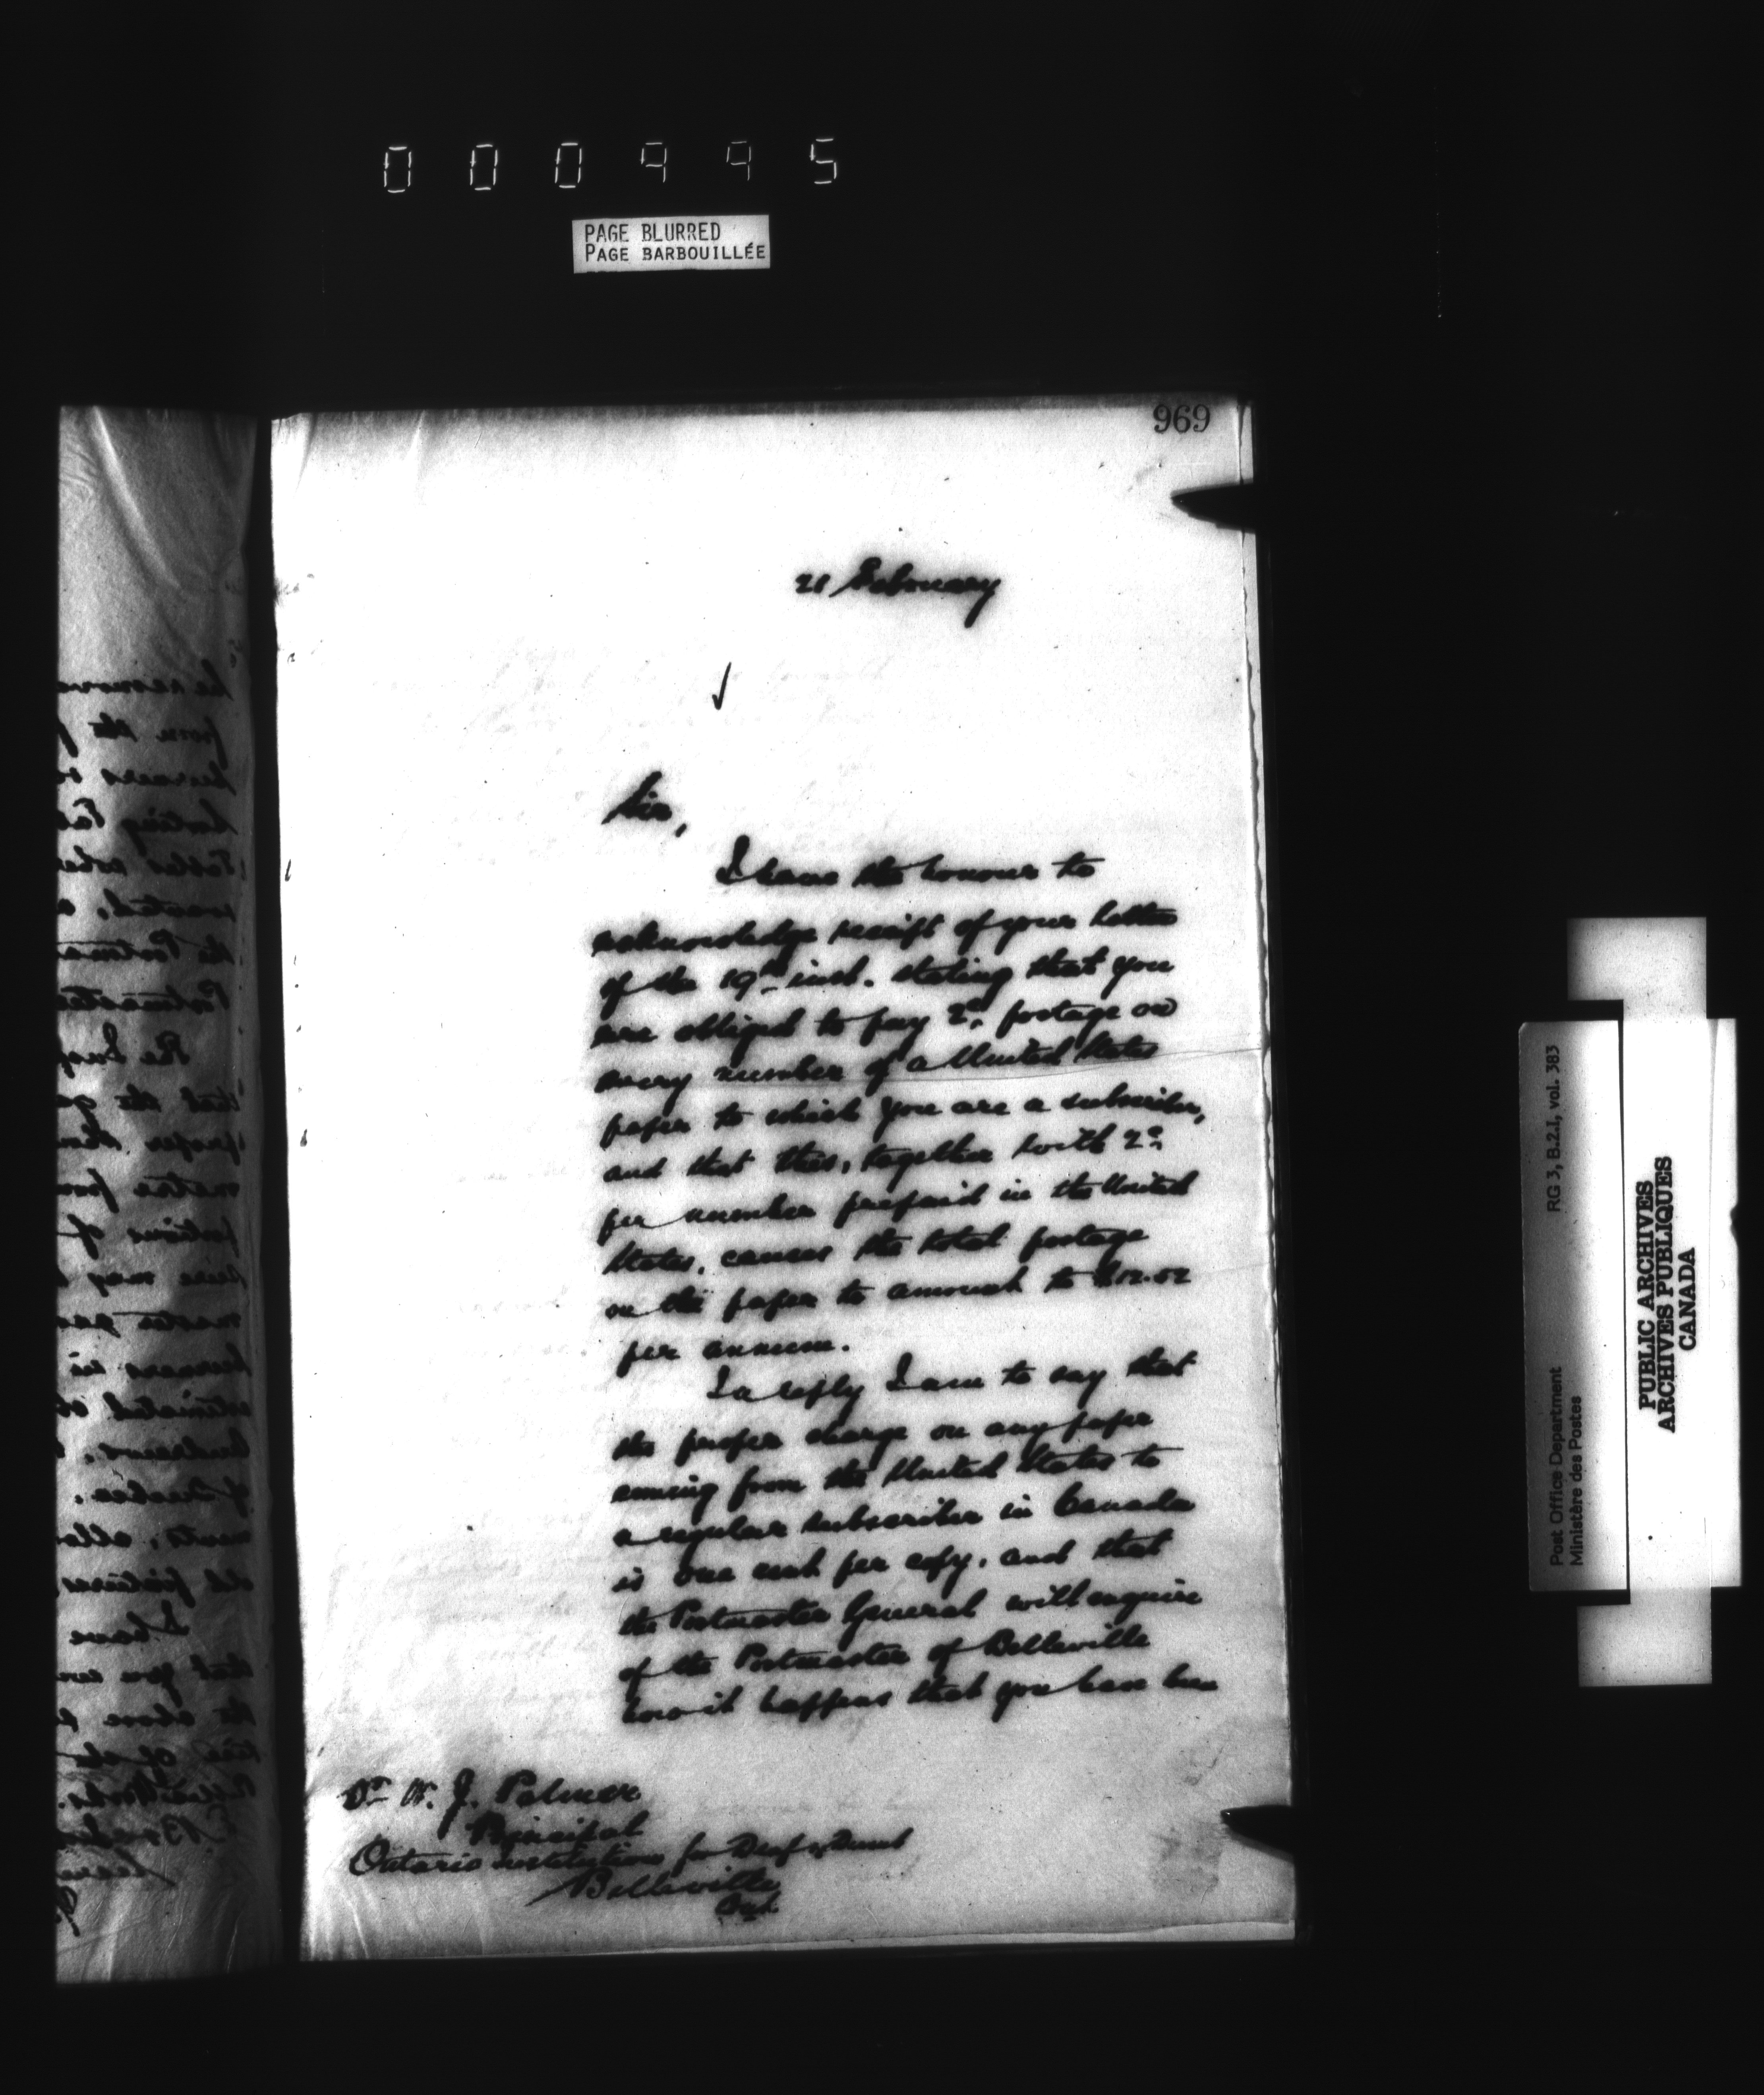 000995
PAGE BLURRED
PAGE BARBOUILLÉE
969
21 February
Sir,
I have the honour to
acknowledge receipt of your letter
of the 19th inst. stating that you
are obliged to pay 2c. postage on
every number of a United States
paper to which you are a subscriber,
and that this, together with 2c.
per number prepaid in the United
States, causes the total postage
on the paper to amount to
per annum.
In reply I am to say that
the proper charge on any paper
coming from the United States to
a regular subscriber in Canada
is one cent per copy, and that
the Postmaster General will enquire
of the Postmaster of Belleville
how it happens that you have been
Dr W. J. Palmer
Principal
Ontario institution for Deaf & Dumb
Belleville
Ont.
Post Office Department RG 3, B.2.I, vol. 383
Ministère des Postes
PUBLIC ARCHIVES
ARCHIVES PUBLIQUES
CANADA